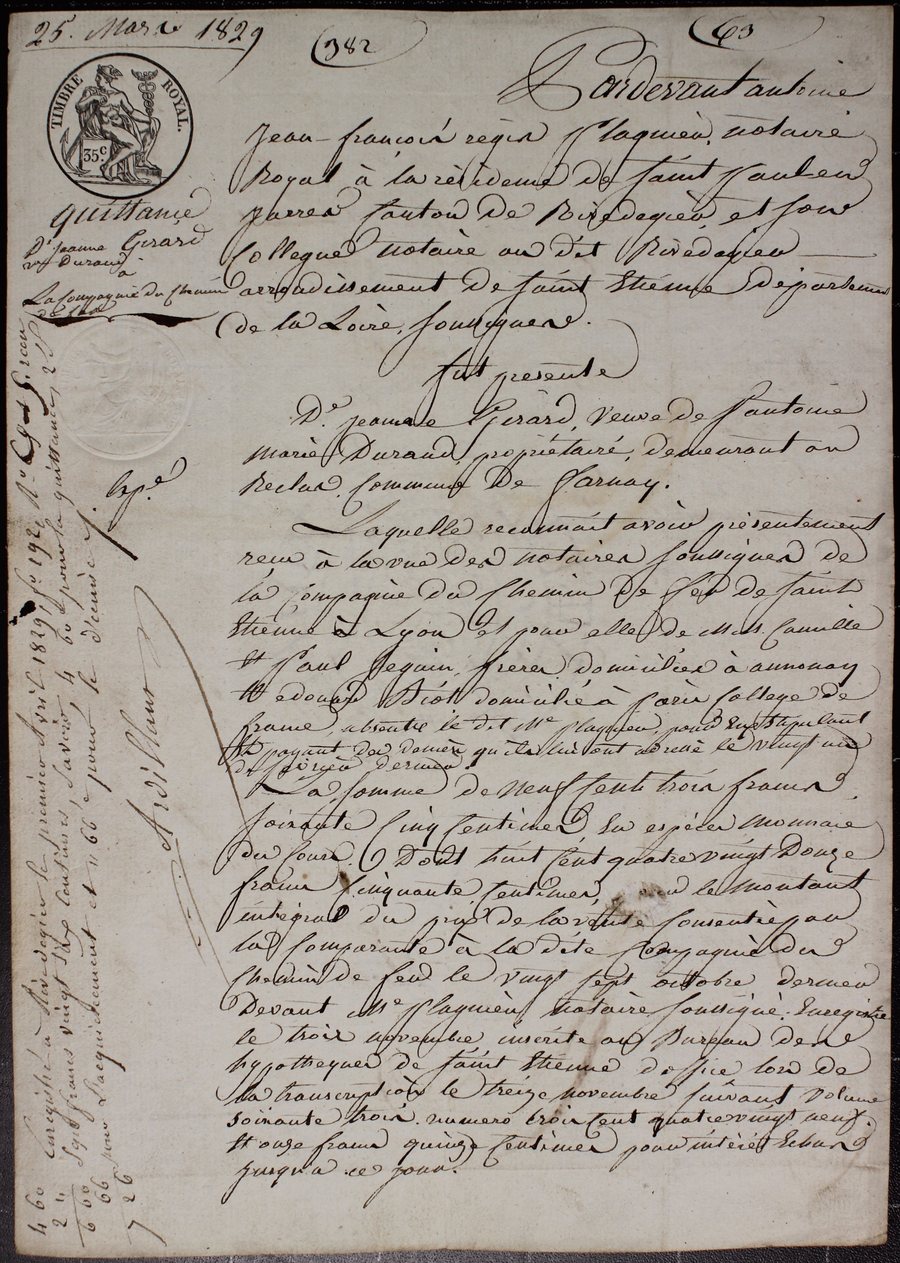 25. Mars 1829
382
63
TIMBRE ROYAL.
35 c.
quittance
De. Jeanne Girard
ve. Durand
à
La Compagnie du Chemin
de fer
Pardevant antoine
Jean-françois régis Plagnieu, notaire
Royal à la résidence de Saint Paul en
Jarret Canton de Rivedegier, et son
Collegue notaire au dit Rivedegier
arrondissement de Saint Etienne département
de la Loire, soussignés.
fut presente
De. jeanne Girard, veuve de antoine
Marie Durand, propriétaire, demeurant au
Reclus, Commune de farnay.
Laquelle reconnait avoir présentement
recu à la vue des notaires soussignés de
la Compagnie du Chemin de fer de Saint
Etienne à Lyon et pour elle de MM. Camille
et Paul Seguin, frères domiciliés à annonay
et edouard Biot domicilié à Paris College de
france, absents le dit Me Plagnieu, pour eux stipulant
et payant des deniers qu'ils lui ont adressé le vingt
de fevrier dernier.
La somme de neuf Cent trois francs
soixante Cinq Centimes en espèces monnaie
du Cours. Dont huit Cent quatre vingt Douze
francs Cinquante Centimes, le montant
intégral du prix de la vente Consentie par
la Comparante à la dite Compagnie du
Chemin de fer le vingt sept octobre dernier
Devant Me Plagnieu, notaire soussigné. Enregistré
le trois novembre inscrite au Bureau des
hypotheques de Saint Etienne d'office lors de
la transcription le treize novembre suivant volume
soixante trois. numero trois Cent quatre vingt neuf.
Et onze francs quinze Centimes pour intérêts Echus
jusqu'à ce jour.
Enregistré à Rivedegier le premier Avril 1829, fo. 192, Ro. C. 4 &
Sept francs vingt six centimes, Savoir, 4 60 pour la quittance, 2 f
pour L'acquiescement et " 66 c pour le decime
Ardillon
4 60
2 "
6 60
66
7 26